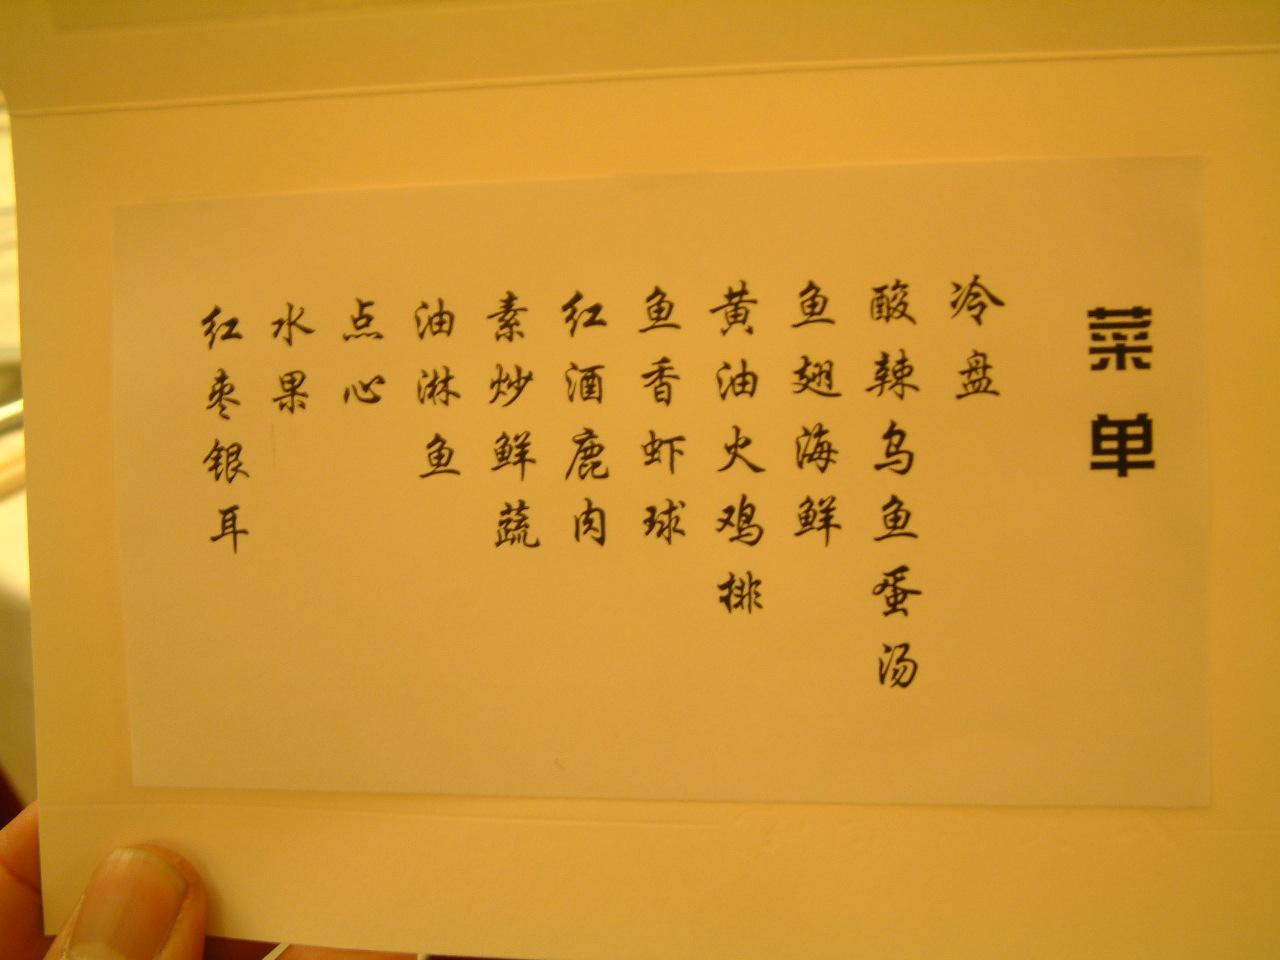 菜单
冷盘
酸辣乌鱼蛋汤
鱼翅海鲜
黄油火鸡排
鱼香虾球
红酒鹿肉
素炒鲜蔬
油淋鱼
点心
水果
红枣银耳